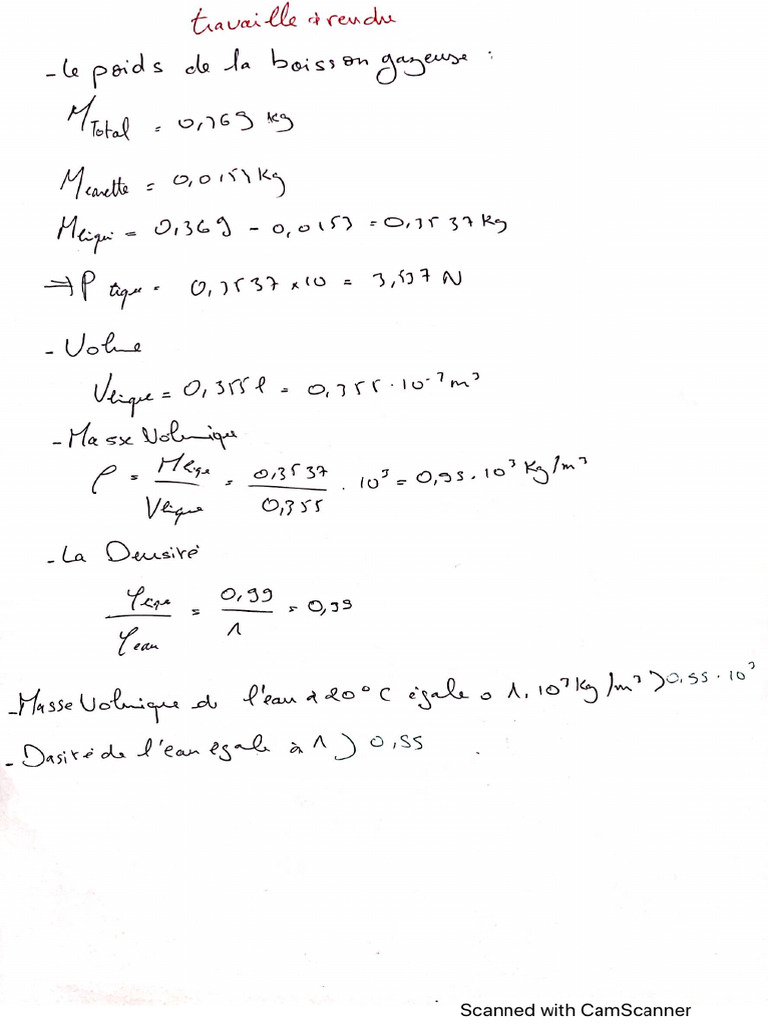 travaille à rendu
- le poids de la boisson gazeuse :
M Total = 0,369 kg
M canette = 0,0153 kg
M liqui = 0,369 - 0,0153 = 0,3537 kg
⇒ P lique = 0,3537 × 10 = 3,537 N
- Volume
V lique = 0,355 l = 0,355 · 10⁻³ m³
- Masse Volumique
ρ = M lique / V lique = 0,3537 / 0,355 · 10³ = 0,99 · 10³ Kg/m³
- La Densité
ρ lique / ρ eau = 0,99 / 1 = 0,99
- Masse Volumique de l'eau à 20°C égale à 1.10³ kg/m³ > 0,99 · 10³
- Dasité de l'eau egale à 1 > 0,99
Scanned with CamScanner